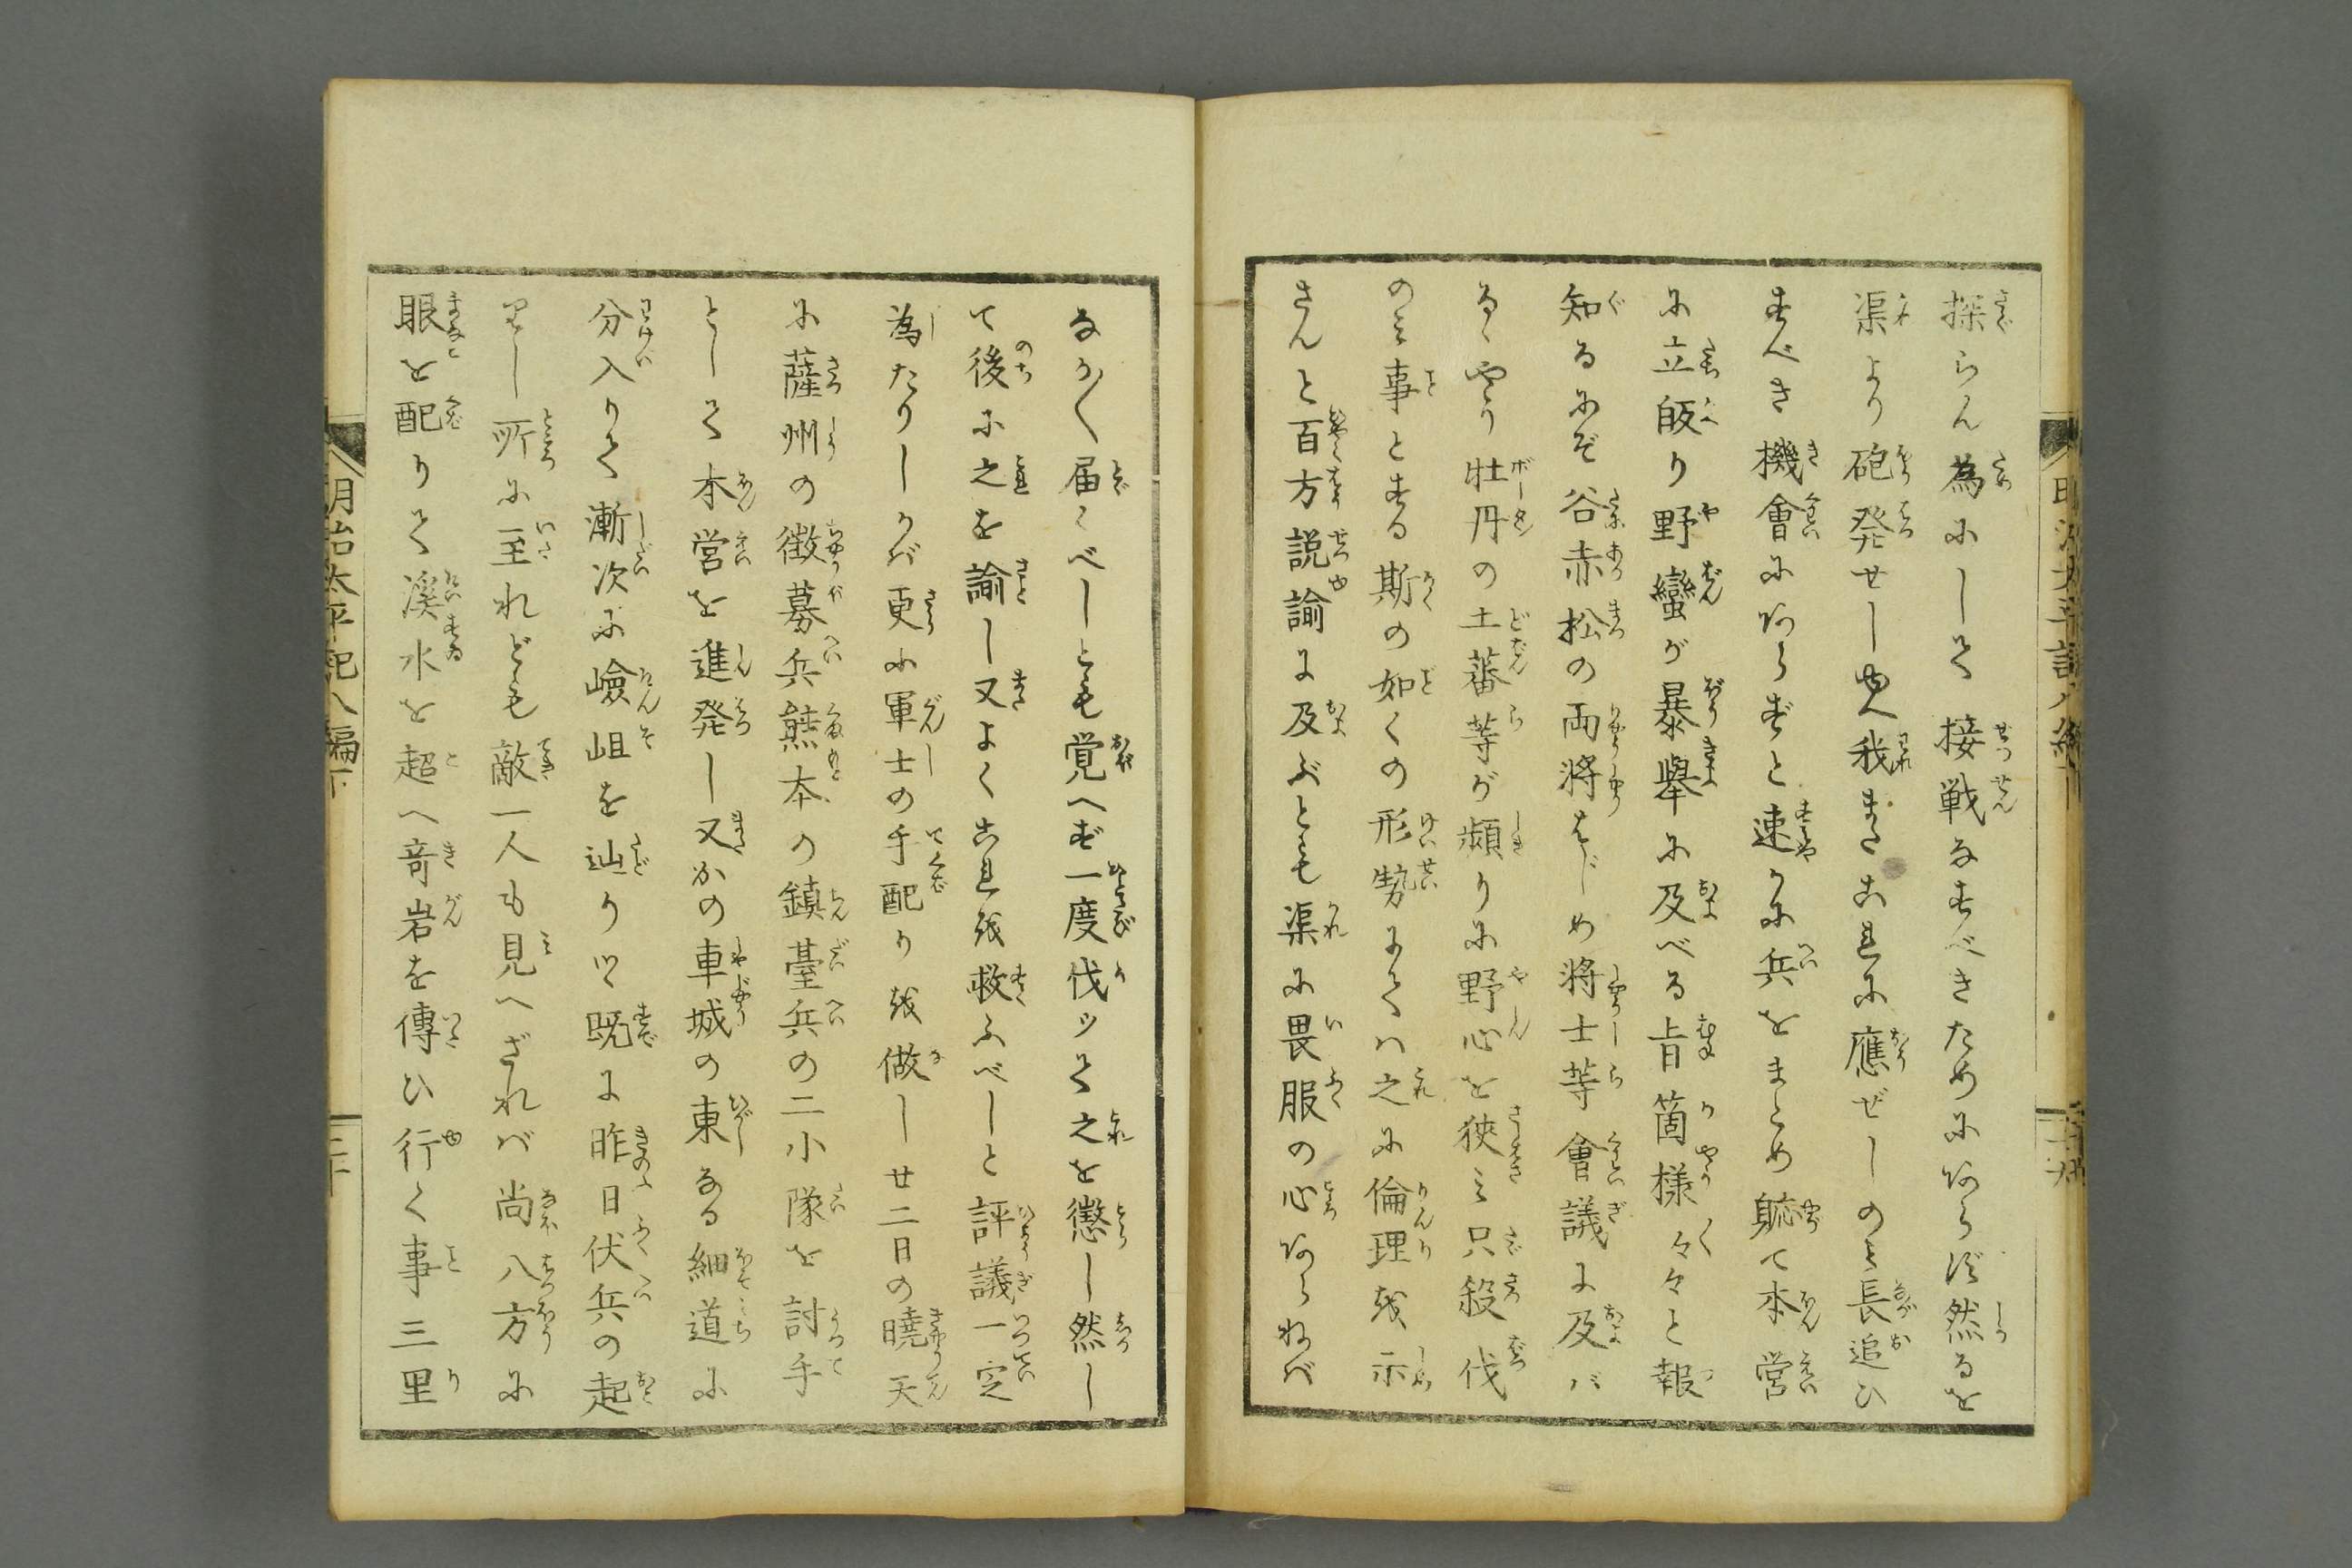 探らん為にして接戦なすべきために非らず然るを
渠より砲発せしゆへ我またこれに應ぜしのみ長追ひ
すべき機會にあらずと速かに兵をまとめ躮て本営
に立皈り野蠻が暴擧に及べる旨箇様々々と報
知るにぞ谷赤松の両將はじめ將士等會議に及バ
るゝやう牡丹の土蕃等が頻りに野心を狹ミ只殺伐
のミ事とする斯の如くの形勢にてハ之に倫理を示
さんと百方説諭に及ぶとも渠に畏服の心あらねば
なか〱届くべしとも覚へず一度伐ツて之を懲し然し
て後に之を諭し又よくこれを救ふべしと評議一定
為たりしかば更に軍士の手配りを做し廿二日の曉天
に薩州の徴募兵熊本の鎮臺兵の二小隊を討手
として本営を進発し又かの車城の東なる細道に
分入りて漸次に嶮岨を辿りツヽ既に昨日伏兵の起
りし所に至れども敵一人も見へざれバ尚八方に
眼を配りて溪水を超へ竒岩を傳ひ行く事三里
明治太平記八編下